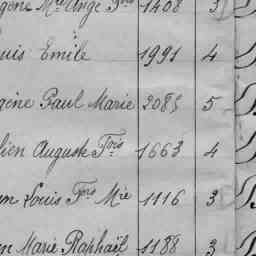 gène Mie Ange Fçois 1408 3
uis Emile 1991 4
gène Paul Marie 2085 5
lien Auguste Fois 1663 4
n Louis Fçois Mie 1116 3
n Marie Raphaël 1188 3